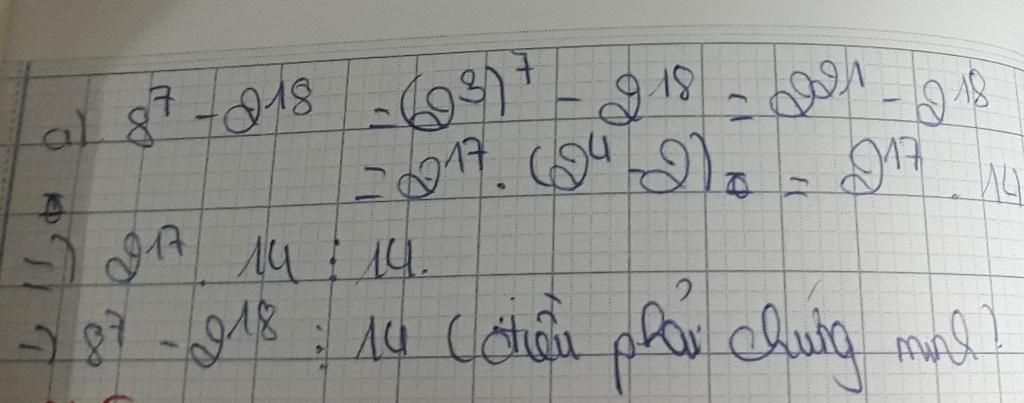 a) 8⁷ - 2¹⁸ = (2³)⁷ - 2¹⁸ = 2²¹ - 2¹⁸
= 2¹⁷ . (2⁴ - 2) = 2¹⁷ . 14
=> 2¹⁷ . 14 ⋮ 14.
=> 8⁷ - 2¹⁸ ⋮ 14 (điều phải chứng minh)